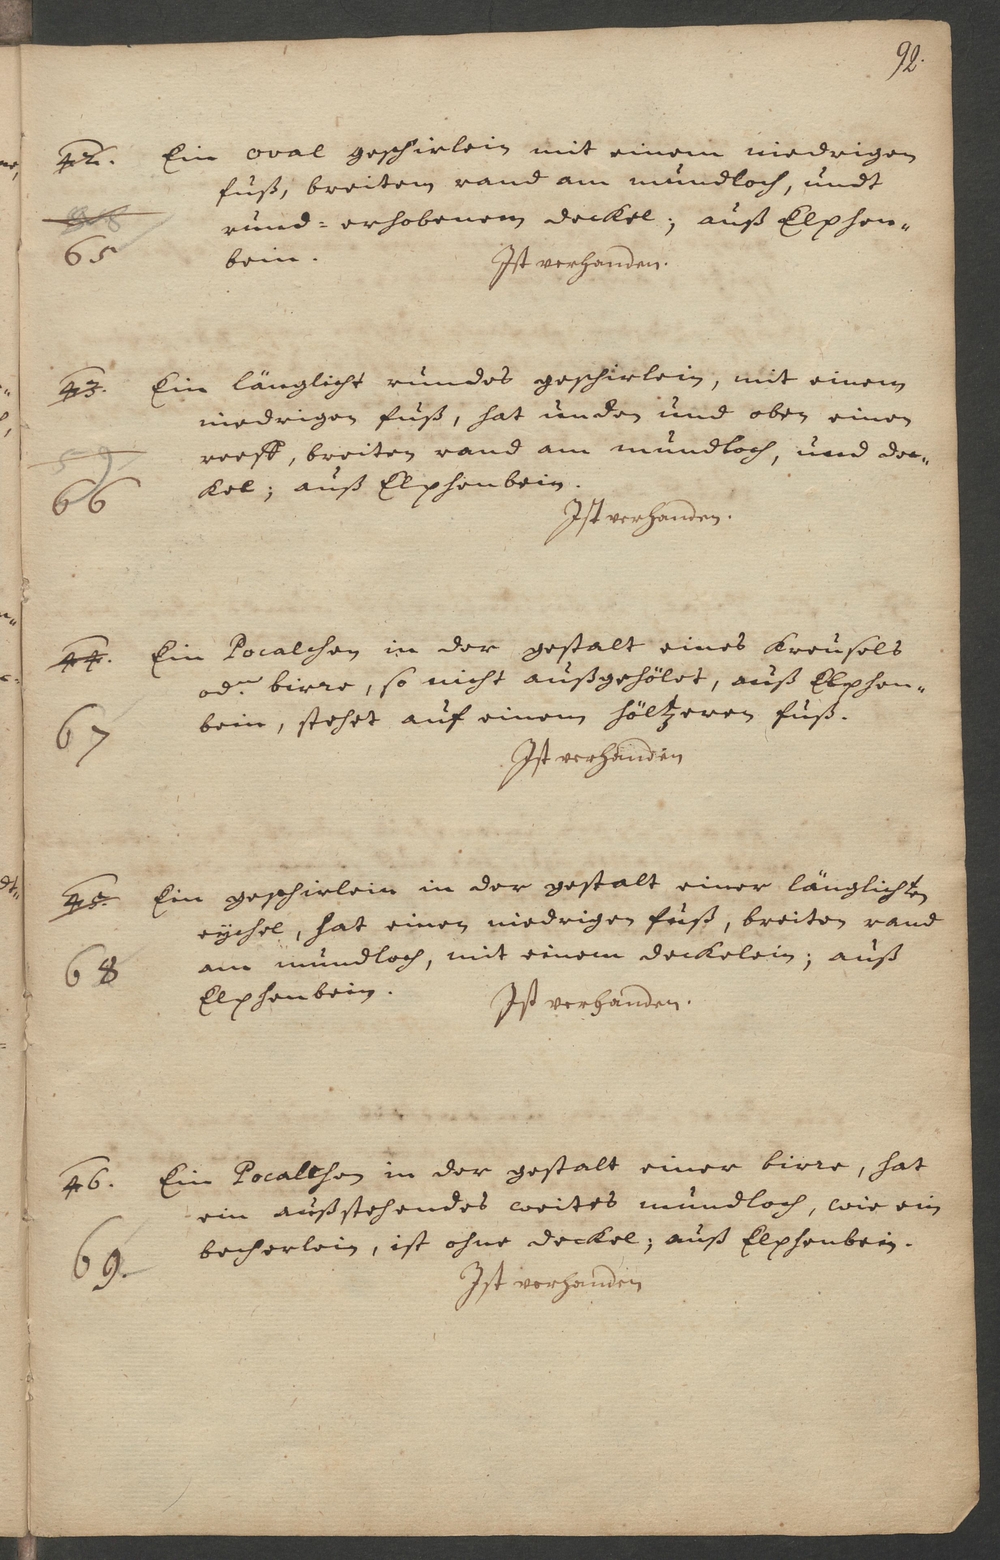 92.
42. Ein oval geschirlein mit einem niedrigen
fuß, breitem rand am mundloch, undt
65 rund=erhobenem deckel; auß Elphen„
bein. Ist verhanden.
43. Ein länglicht rundes geschirlein, mit einem
niedrigen fuß, hat unden und oben einen
59 reeff, breiten rand am mundloch, und dec„
66 kel; auß Elphenbein.
Ist verhanden.
44. Ein Pocalchen in der gestalt eines Kreusels
od. birre, so nicht außgehölet, auß Elphen„
67 bein, stehet auf einem höltzeren fuß.
Ist verhanden
45. Ein geschirlein in der gestalt einer länglichten
eychel, hat einen niedrigen fuß, breiten rand
68 am mundloch, mit einem deckelein; auß
Elphenbein. Ist verhanden.
46. Ein Pocalchen in der gestalt einer birre, hat
ein außstehendes weites mundloch, wie ein
69. becherlein, ist ohne deckel; auß Elphenbein.
Ist verhanden